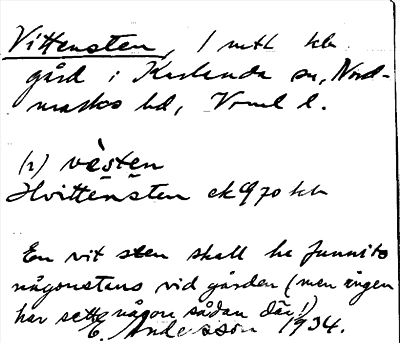 Vittensten, 1 mtl kr
gård i Karlanda sn, Nord-
marks hd, Vrml l.
(2) vèsten
Hvittensten ek 970 kr
En vit sten skall ha funnits
någonstans vid gården (men ingen
har sett någon sådan där!)
E. Andersson 1934.